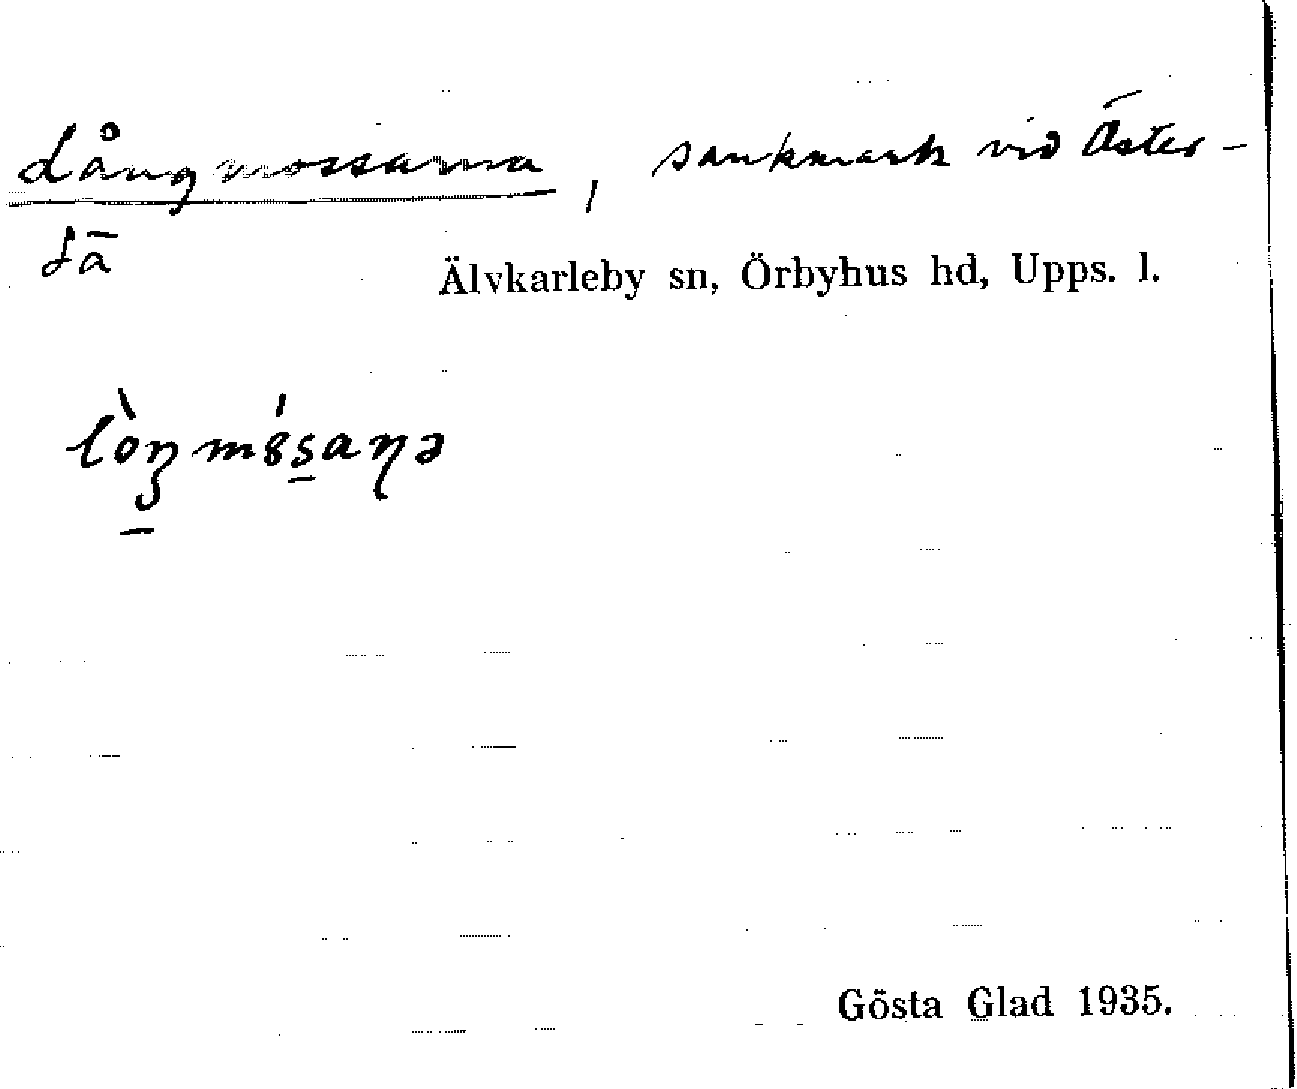 Långmossarna, sankmark vid Öster-
Lä
Älvkarleby sn, Örbyhus hd, Upps. l.
Gösta Glad 1935.